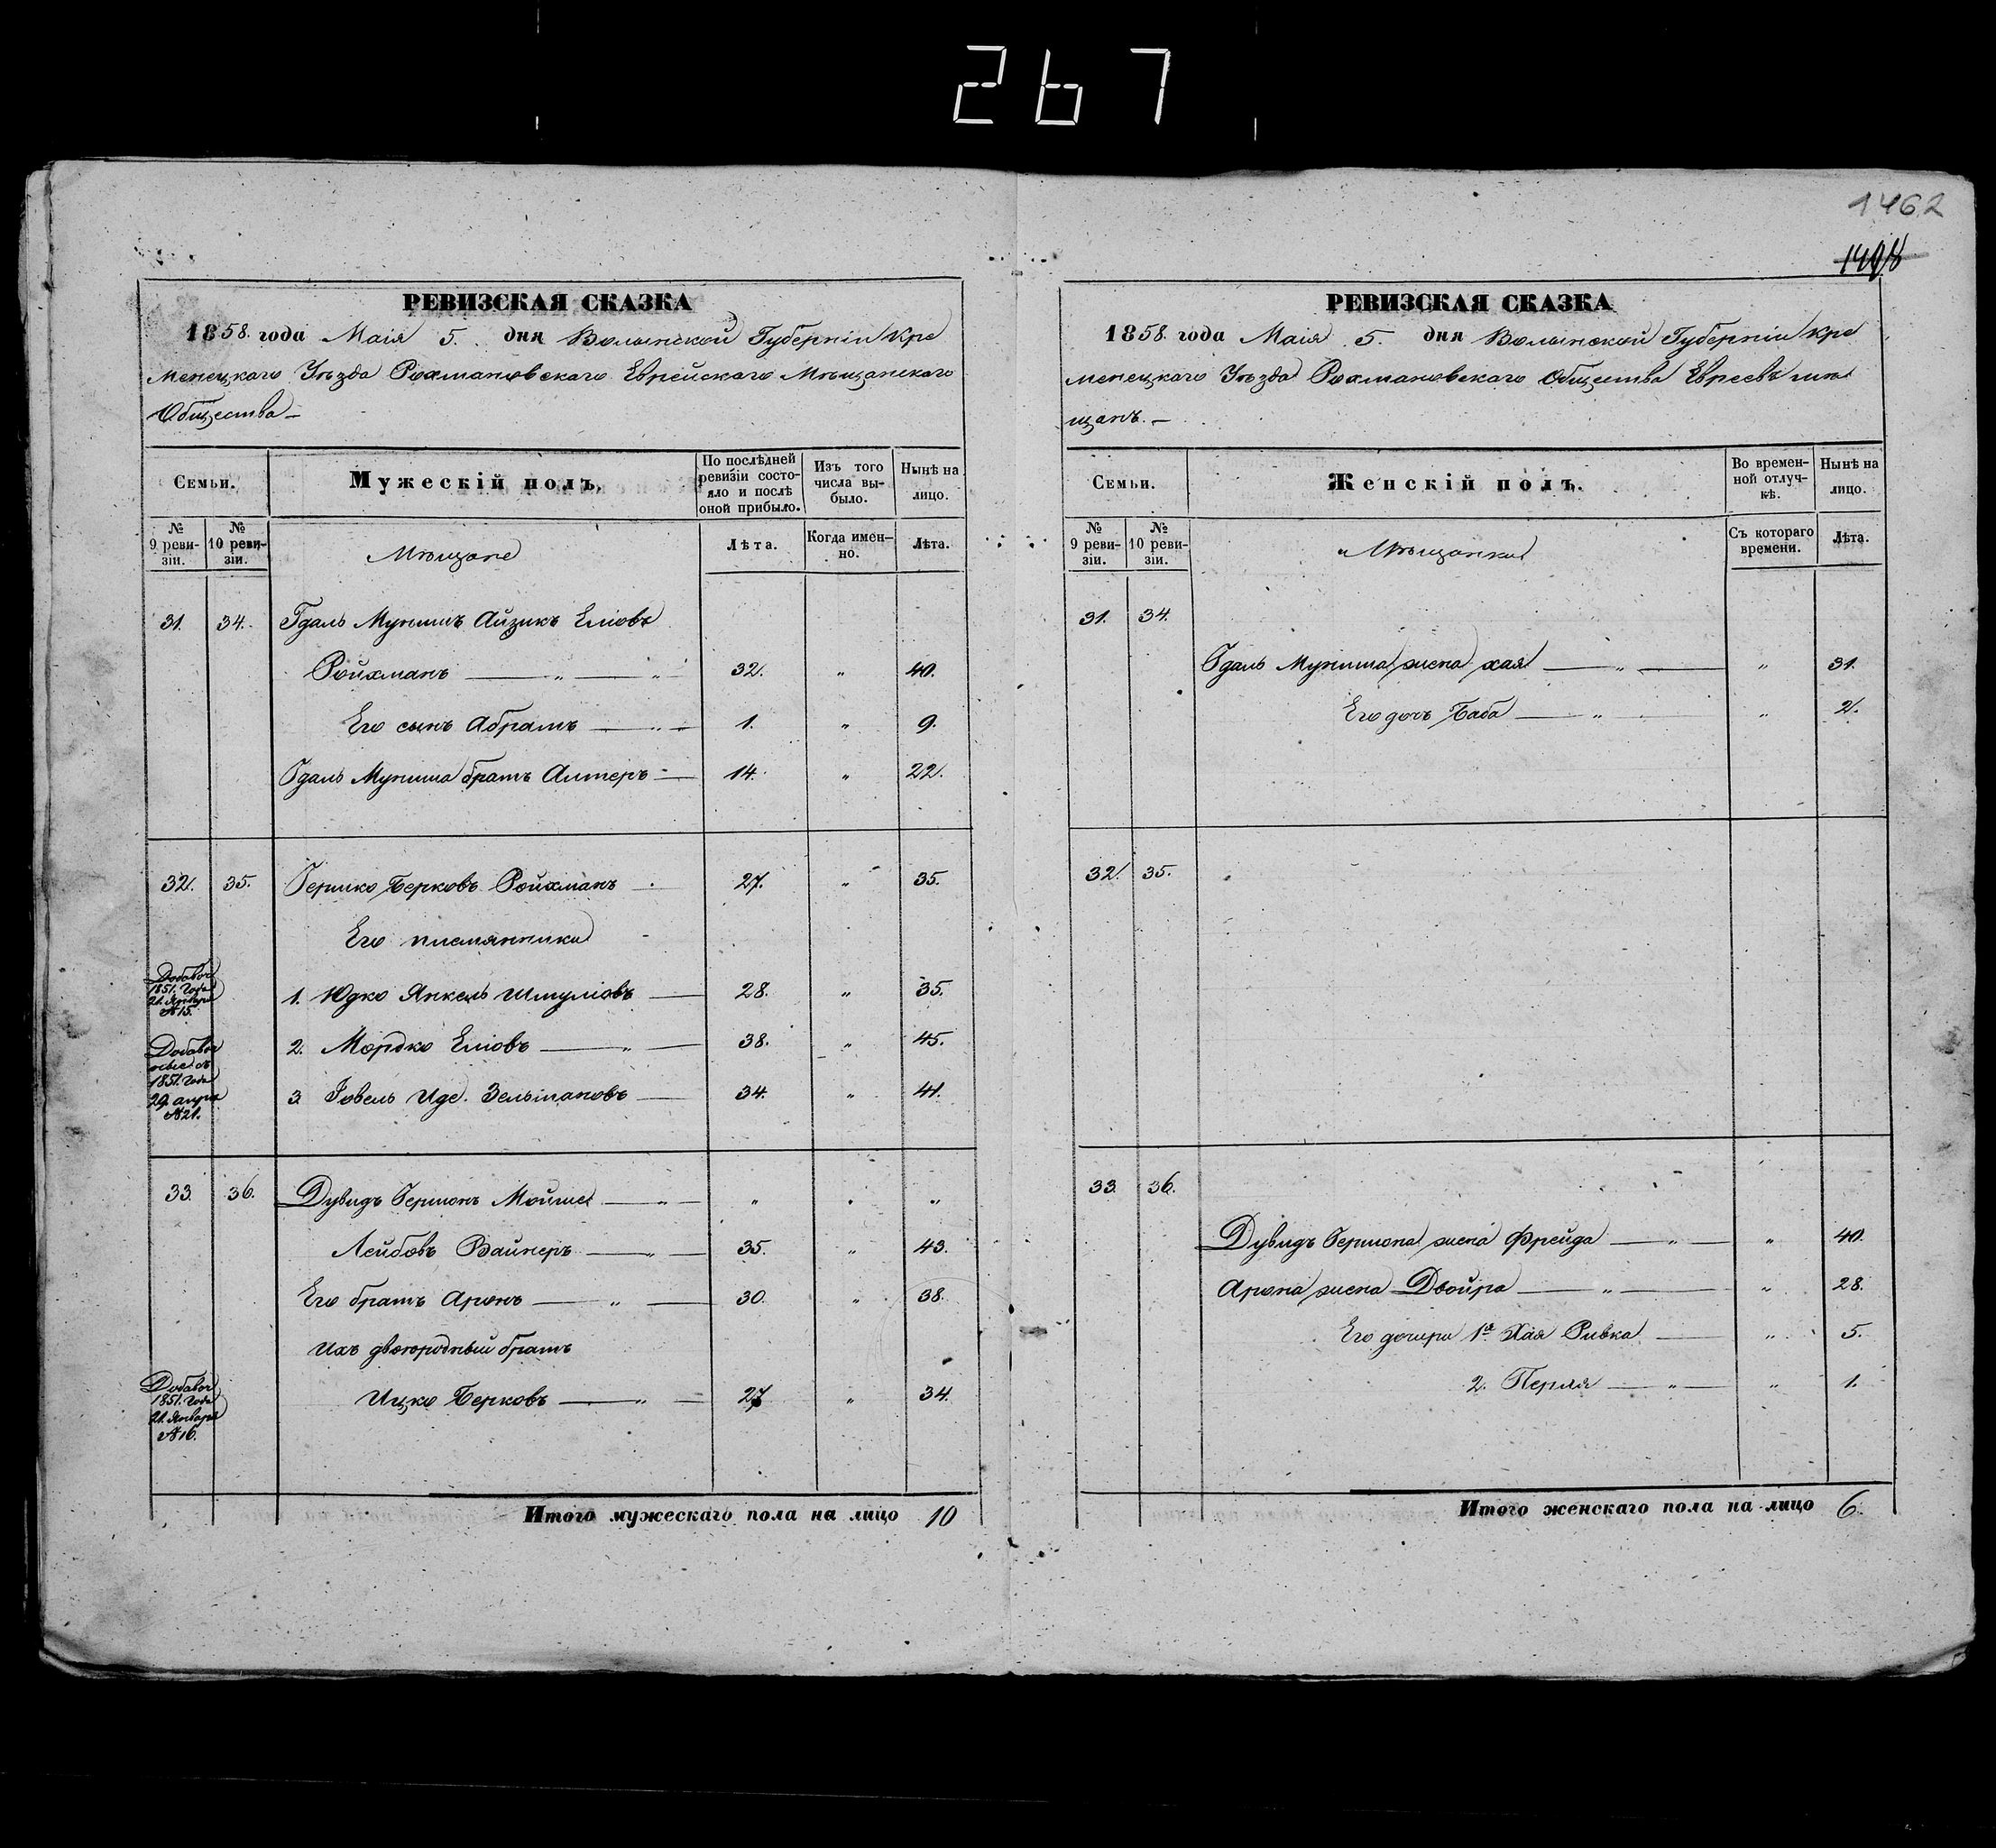 267
1462
1498
РЕВИЗСКАЯ СКАЗКА
1858. года Маія 5. дня Волынской Губерніи Кре
менецкаго Уѣзда Рохмановскаго Еврейскаго Мѣщанскаго
Общества —
Семьи.
Мужескій полъ.
По послѣдней ревизіи состояло и послѣ оной прибыло.
Изъ того числа выбыло.
Нынѣ на лицо.
№ 9 ревизіи.
№ 10 ревизіи.
Мѣщане
Лѣта.
Когда именно.
Лѣта.
31. 34. Гдаль Мунишъ Айзикъ Еліовъ
Ройхманъ — „ — „ 32. „ 40.
Его сынъ Абрамъ — „ — 1. „ 9.
Гдаль Муниша братъ Алтеръ — 14. „ 22.
32. 35. Гершко Берковъ Ройхманъ — 27. „ 35.
Его племянники
Добавоч 1851. Года 21. Января №15.
1. Юдко Янкель Шмуліовъ — 28. „ 35.
Добавоч 1851. Года №21.
2. Мордко Еліовъ — „ — 38. „ 45.
3 Іовель Иде. Зельмановъ — 34. „ 41.
33. 36. Дувидъ Гершонъ Мойше — „ — „ „ „
Лейбовъ Вайнеръ — „ — 35. „ 43.
Его братъ Аронъ — „ — 30. „ 38.
Ихъ двоюродный братъ
Добавоч 1851. Года 21. Января №16.
Ицко Берковъ — „ — 27 „ 34.
Итого мужескаго пола на лицо 10
РЕВИЗСКАЯ СКАЗКА
1858. года Маія 5. дня Волынской Губерніи Кре
менецкаго Уѣзда Рохмановскаго Общества Евреевъ мѣ
щанъ. —
Семьи.
Женскій полъ.
Во временной отлучкѣ.
Нынѣ на лицо.
№ 9 ревизіи.
№ 10 ревизіи.
Мѣщанки
Съ котораго времени.
Лѣта.
31. 34.
Гдаль Муниша жена Хая — „ — „ 31.
Его дочь Баба — „ „ 2.
32. 35.
33. 36.
Дувидъ Гершона жена Фрейда — „ — „ 40.
Арона жена Двойра — „ — „ 28.
Его дочери 1ª Хая Ривка — „ 5.
2. Перля — „ — „ 1.
Итого женскаго пола на лицо 6.